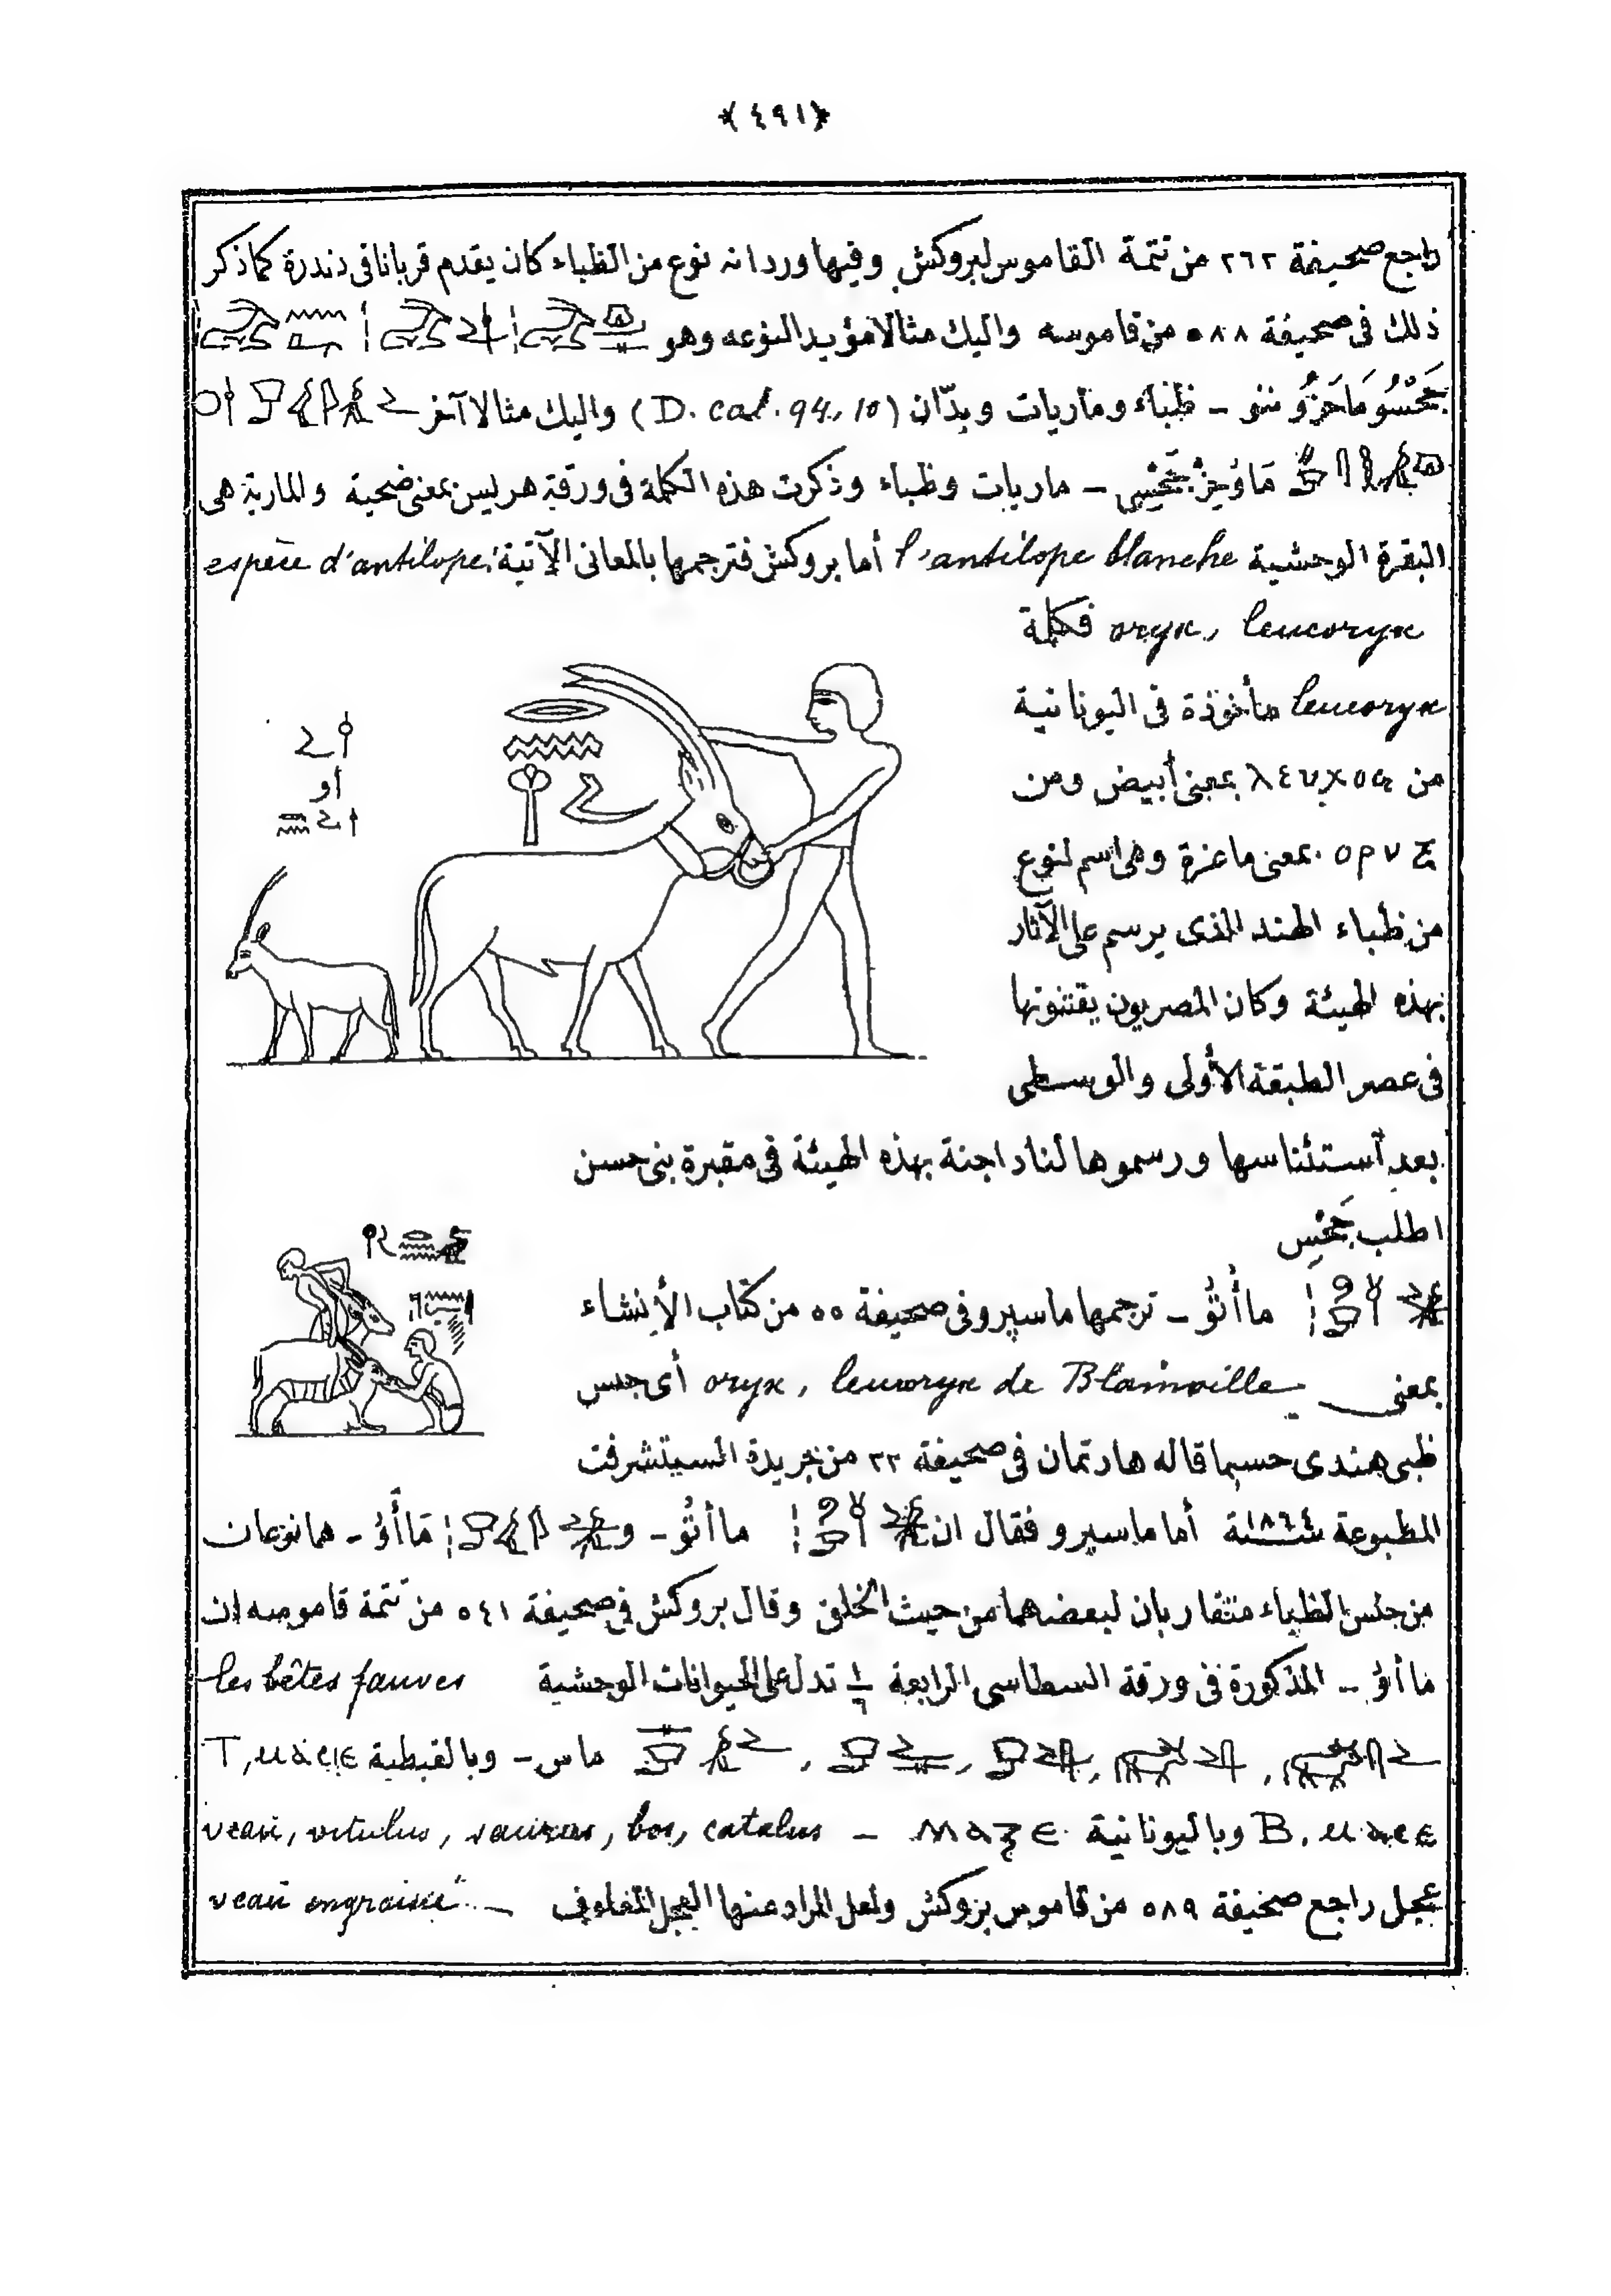 ﴿٤٩١﴾
راجع صحيفة ٢٦٢ من تتمة القاموس لبروكش وفيها ورد انه نوع من الظباء كان يقدم قربانا فى دندرة كما ذكر
ذلك فى صحيفة ٥٨٨ من قاموسه واليك مثالا مؤيد النوعه وهو
ظباء وماريات وبدّان (D. cal. 94, 10) واليك مثالا آخر
ماريات وظباء وذكرت هذه الكلمة فى ورقة هريس بمعنى ضحية والمارية هى
البقرة الوحشية l'antilope blanche أما بروكش فترجمها بالمعانى الآتية: espèce d'antilope
oryx, leucoryx فكلمة
leucoryx مأخوذة فى اليونانية
من λευχος بمعنى أبيض ومن
بمعنى ماعزة وهى اسم لنوع
من ظباء الهند الذى يرسم على الآثار
بهذه الهيئة وكان المصريون يقتنونها
فى عصر الطبقة الأولى والوسطى
أو
بعد آستئناسها ورسموها لنا داجنة بهذه الهيئة فى مقبرة بنى حسن
اطلب جَحْسِ
ماأُتُو - ترجمها ماسپرو فى صحيفة ٥٥ من كتاب الأنشاء
بمعنى oryx, leucoryx de Blainville أى جنس
ظبى هندى حسبما قاله هارتمان فى صحيفة ٢٢ من جريدة السيتشرفت
المطبوعة سنة ١٨٦٤ أما ماسپرو فقال ان ماأتُو - و مَاأَوُ - هما نوعان
من جنس الظباء متقاربان لبعضهما من حيث الخلق وقال بروكش فى صحيفة ٥٤١ من تتمة قاموسه ان
ماأو - المذكورة فى ورقة السطاسى الرابعة تدل على الحيوانات الوحشية les bêtes fauves
ماس - وبالقبطية T, ⲙⲁⲥⲓⲉ
B, ⲙⲁⲥⲉ وباليونانية - veau, vitulus, taurus, bos, catulus
عجل راجع صحيفة ٥٨٩ من قاموس بروكش ولعل المراد منها العجل المعلوف - veau engraissé